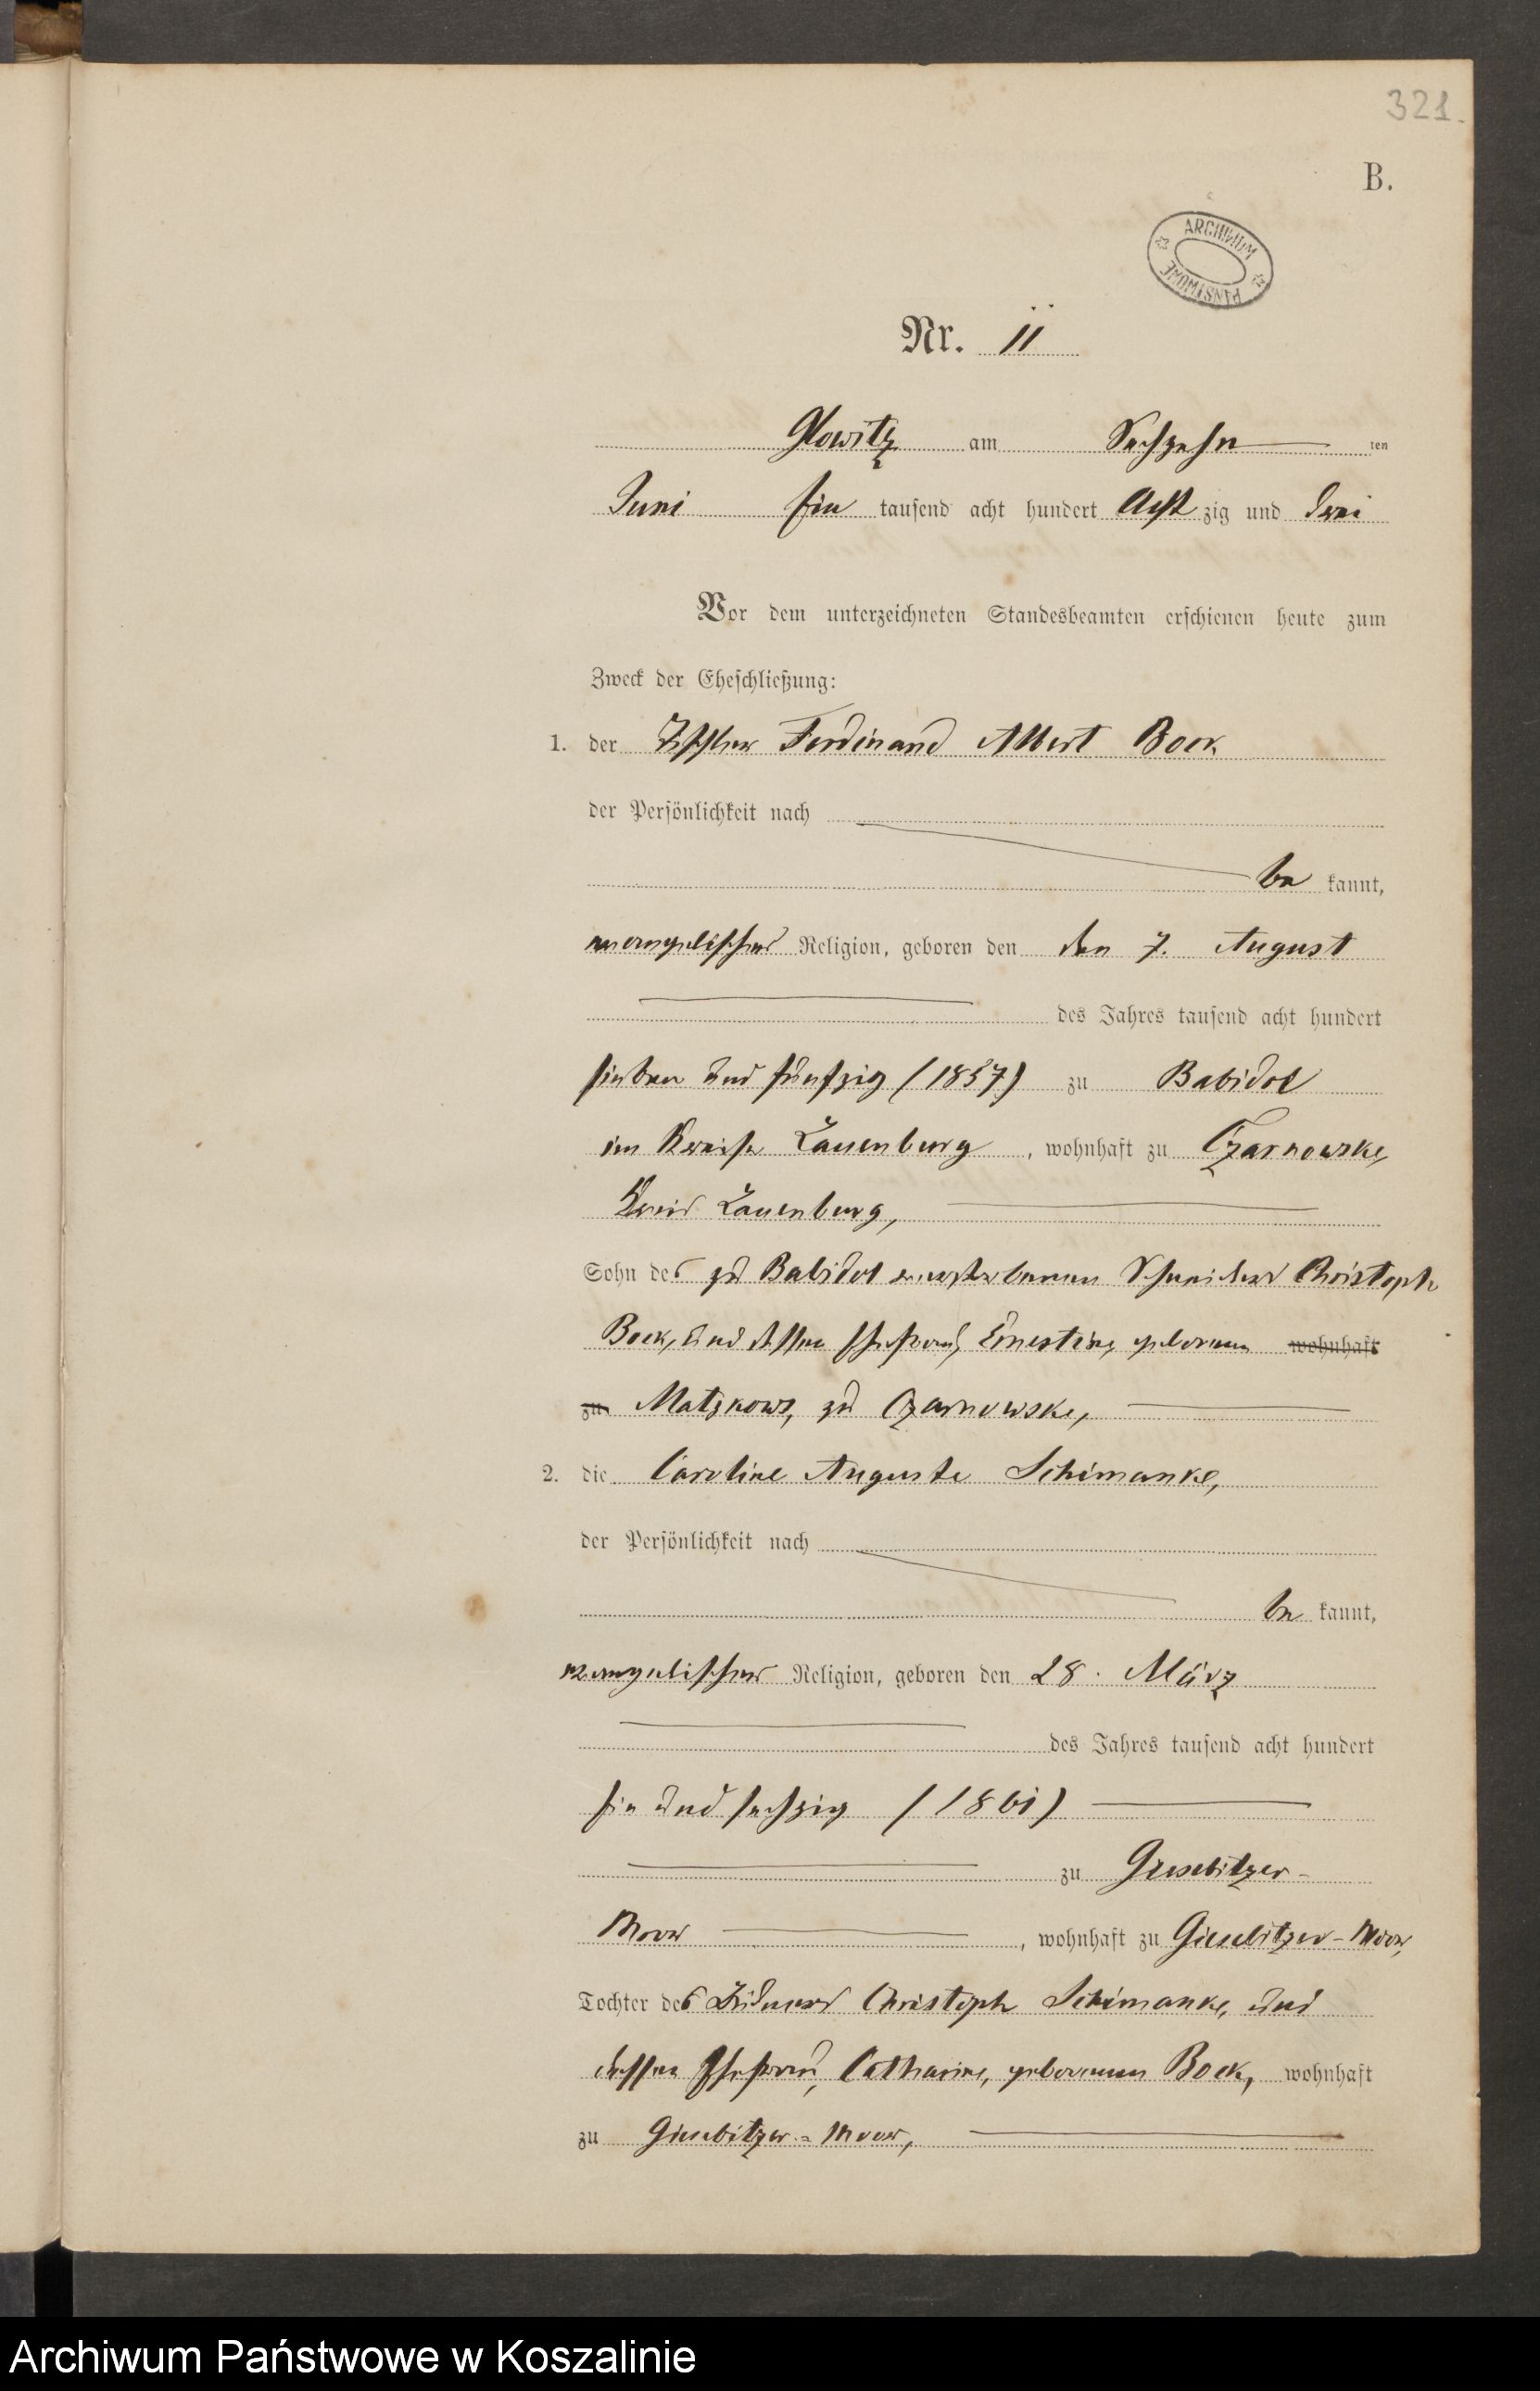 321.
B.
ARCHIWUM
PAŃSTWOWE
Nr. 11
Glowitz am Sechzehn ten
Juni Ein tausend acht hundert Acht zig und drei
Vor dem unterzeichneten Standesbeamten erschienen heute zum
Zweck der Eheschließung:
1. der Tischler Ferdinand Albert Bock
der Persönlichkeit nach
be kannt,
evangelischer Religion, geboren den den 7. August
des Jahres tausend acht hundert
sieben und fünfzig (1857) zu Babidol
im Kreise Lauenburg, wohnhaft zu Czarnowske,
Kreis Lauenburg,
Sohn des zu Babidol verstorbenen Schneiders Christoph
Bock, und dessen Ehefrau, Ernestine, geborenen wohnhaft
zu Matzkows, zu Czarnowske,
2. die Caroline Auguste Schimanke,
der Persönlichkeit nach
be kannt,
evangelischer Religion, geboren den 28. März
des Jahres tausend acht hundert
ein und sechzig (1861)
zu Giesebitzer-
Moor, wohnhaft zu Giesebitzer-Moor,
Tochter des Büdners Christoph Schimanke, und
dessen Ehefrau, Catharine, geborenen Bock, wohnhaft
zu Giesebitzer-Moor,
Archiwum Państwowe w Koszalinie